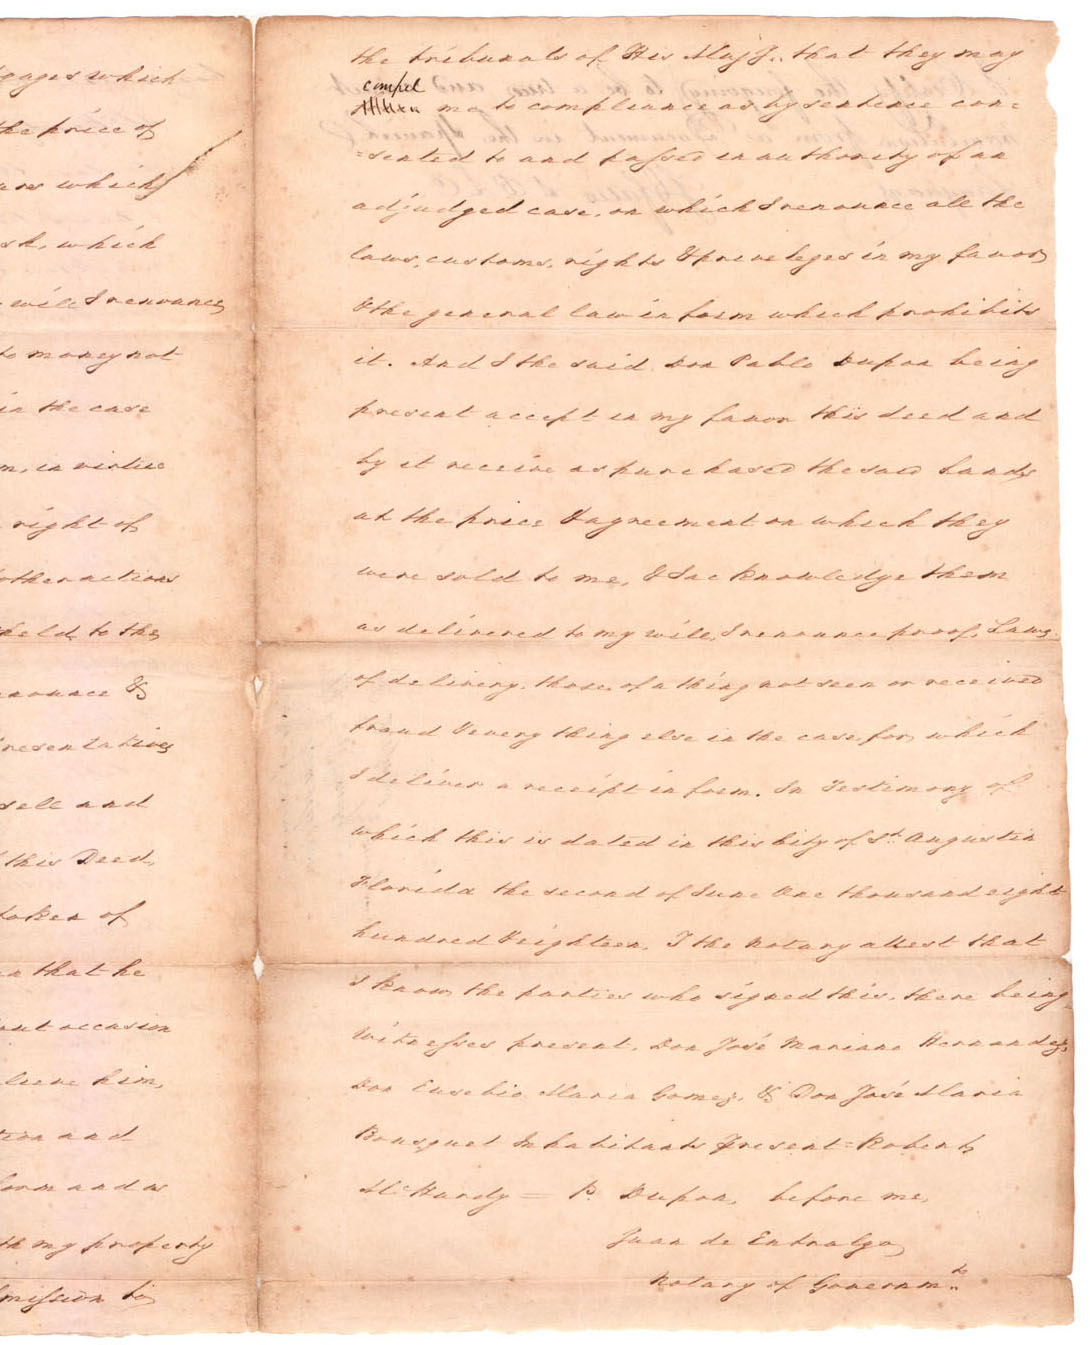 gages which
the price of
ure which
sk, which
will I renounce
to money not
in the case
m, in virtue
right of
other actions
held to the
enounce &
presentatives
sell and
this Deed,
token of
n that he
ant occasion
leeve him,
tion and
form and as
th my property
mission to
the tribunals of His Majy., that they may
compel
me to compliance as by sentence con=
=sented to and passed in authority of an
adjudged case, on which I renounce all the
laws, customs, rights & priveleges in my favor
& the general law in form which prohibits
it. And I the said Don Pablo Dupon being
present accept in my favor this deed and
by it receive as purchased the said Lands
at the price & agreement on which they
were sold to me, & I acknowledge them
as delivered to my will, I renounce proof, Laws
of delivery, those of a thing not seen or received
fraud & every thing else in the case, for which
I deliver a receipt in form. In Testimony of
which this is dated in this City of St. Augustin
Florida the second of June One thousand eight
hundred & eighteen. I the Notary attest that
I know the parties who signed this, there being
Witnesses present, Don José Mariano Hernandez,
Don Eusebio Maria Gomez, & Don José Maria
Bousquet Inhabitants & present = Robert
McHardy = P. Dupon, before me,
Juan de Entralgo
Notary of Governmt.